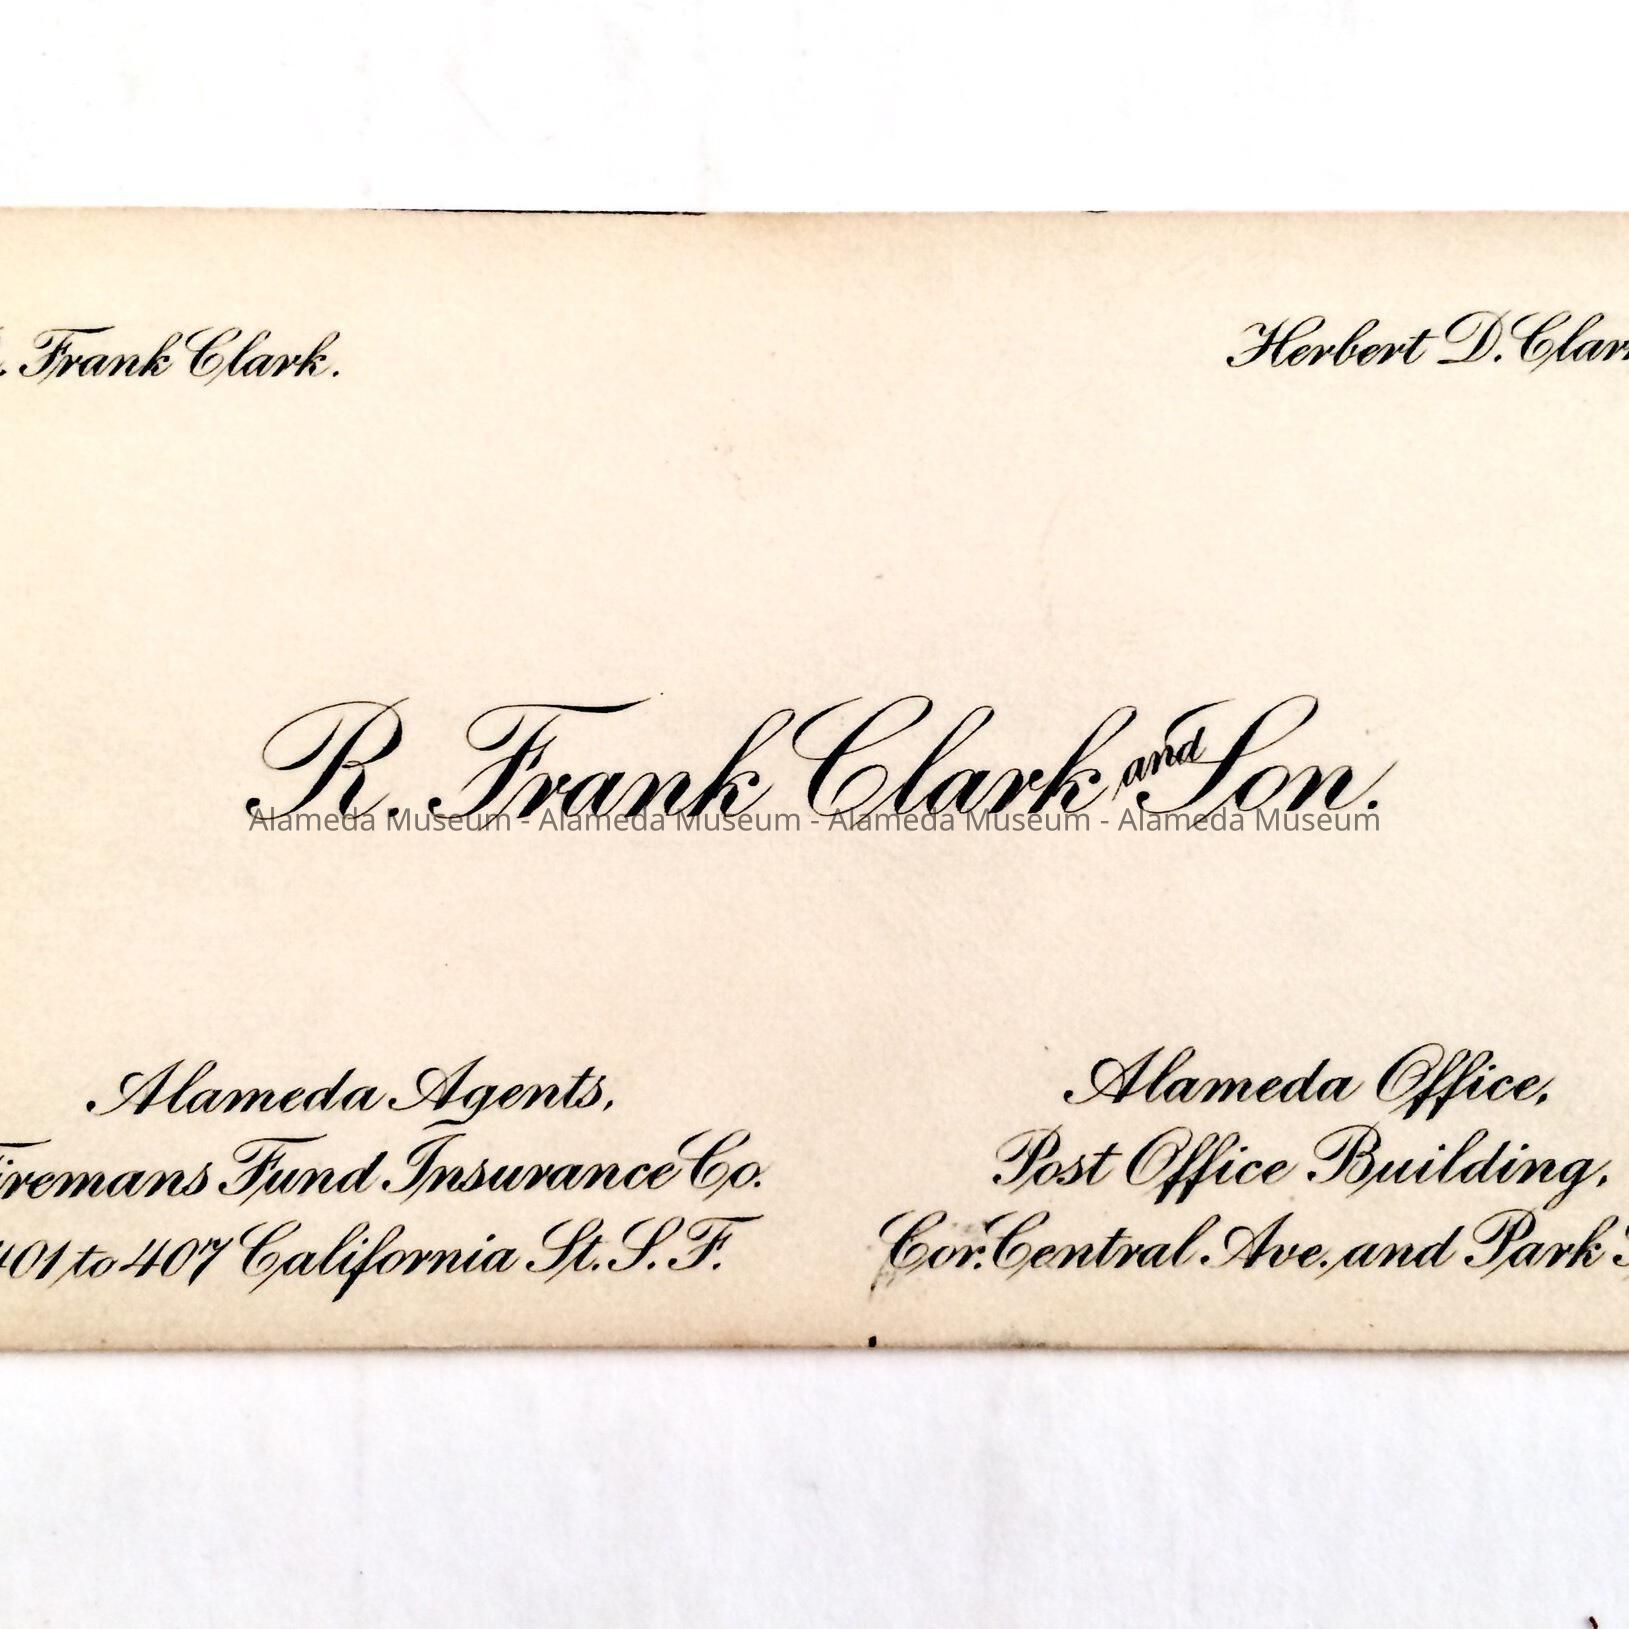 . Frank Clark.
Herbert D. Clar
R. Frank Clark and Son.
Alameda Museum - Alameda Museum - Alameda Museum - Alameda Museum
Alameda Agents,
iremans Fund Insurance Co.
401 to 407 California St. S. F.
Alameda Office,
Post Office Building,
Cor. Central Ave. and Park